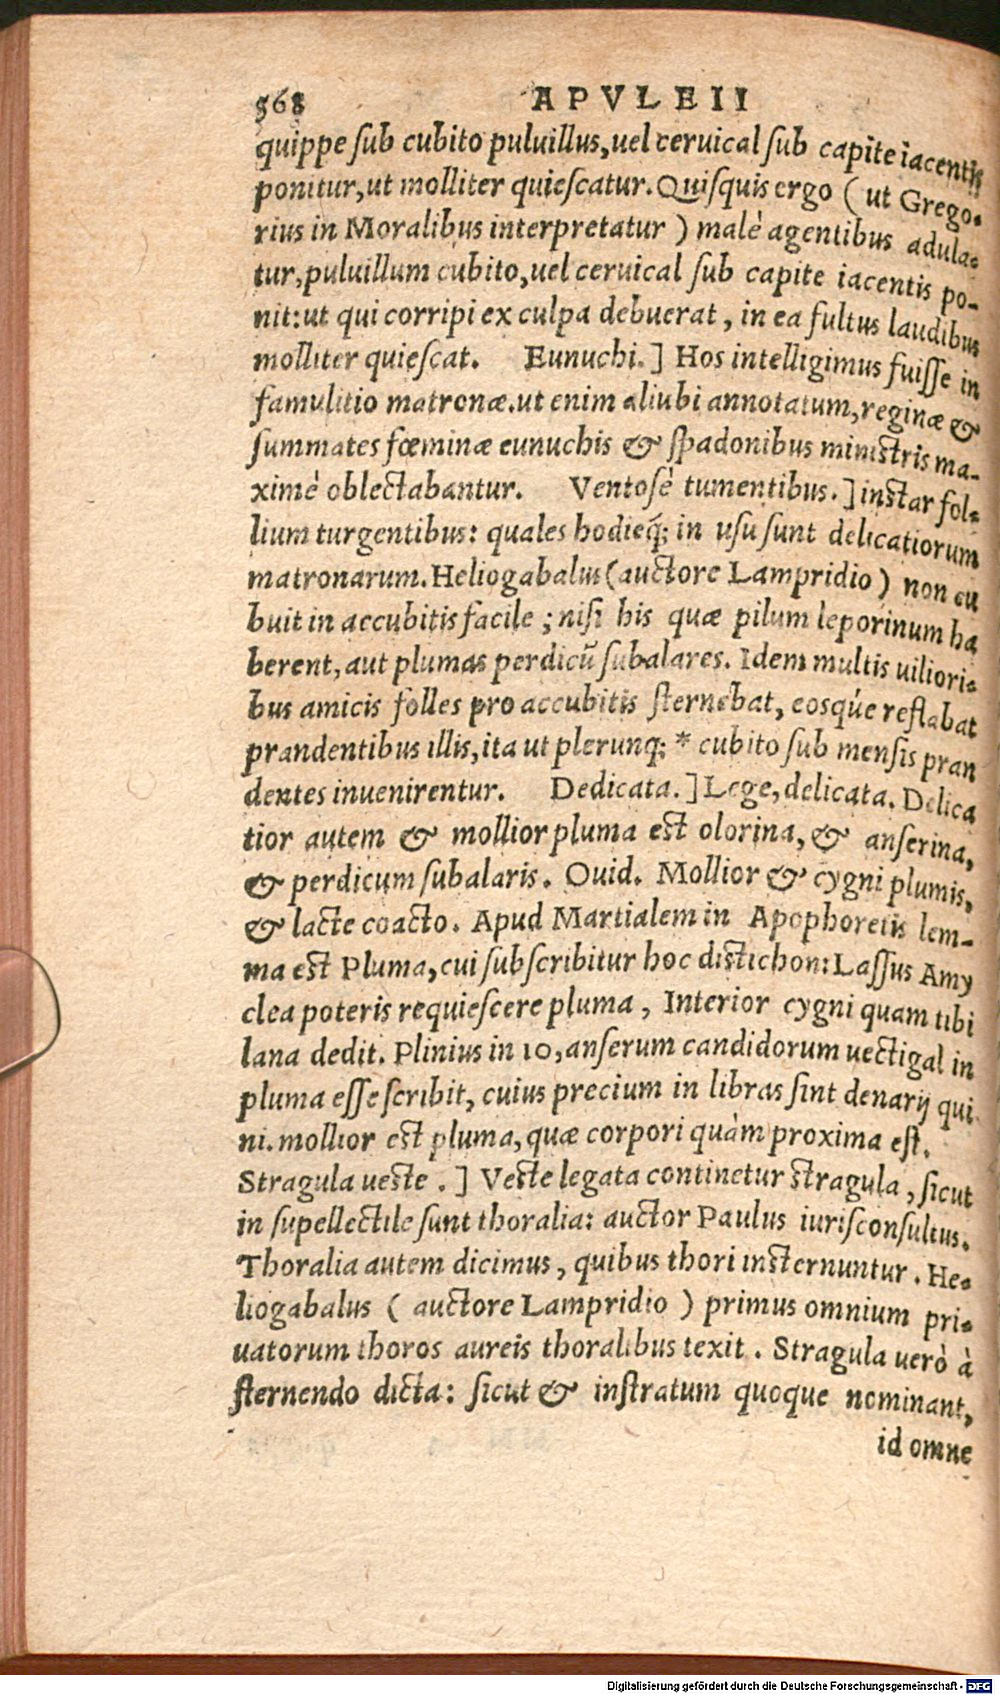 568 APVLEII
quippe sub cubito puluillus, uel ceruical sub capite iacentis
ponitur, ut molliter quiescatur. Quisquis ergo ( ut Grego-
rius in Moralibus interpretatur ) malè agentibus adula-
tur, puluillum cubito, uel ceruical sub capite iacentis po-
nit: ut qui corripi ex culpa debuerat, in ea fultus laudibus
molliter quiescat. Eunuchi. ] Hos intelligimus fuisse in
famulitio matronæ. ut enim aliubi annotatum, reginæ &
summates fœminæ eunuchis & spadonibus ministris ma-
ximè oblectabantur. Ventosè tumentibus. ] instar fol-
lium turgentibus: quales hodieq; in usu sunt delicatiorum
matronarum. Heliogabalus (auctore Lampridio ) non cu
buit in accubitis facile ; nisi his quæ pilum leporinum ha
berent, aut plumas perdicũ subalares. Idem multis uiliori-
bus amicis folles pro accubitis sternebat, eosque reflabat
prandentibus illis, ita ut plerunq; * cubito sub mensis pran
dentes inuenirentur. Dedicata. ] Lege, delicata. Delica
tior autem & mollior pluma est olorina, & anserina,
& perdicum subalaris. Ouid. Mollior & cygni plumis,
& lacte coacto. Apud Martialem in Apophoretis lem-
ma est Pluma, cui subscribitur hoc distichon: Lassus Amy
clea poteris requiescere pluma, Interior cygni quam tibi
lana dedit. Plinius in 10, anserum candidorum uectigal in
pluma esse scribit, cuius precium in libras sint denarij qui
ni. mollior est pluma, quæ corpori quàm proxima est.
Stragula ueste . ] Veste legata continetur stragula, sicut
in supellectile sunt thoralia: auctor Paulus iurisconsultus.
Thoralia autem dicimus, quibus thori insternuntur. He-
liogabalus ( auctore Lampridio ) primus omnium pri-
uatorum thoros aureis thoralibus texit. Stragula uerò à
sternendo dicta: sicut & instratum quoque nominant,
id omne
Digitalisierung gefördert durch die Deutsche Forschungsgemeinschaft - DFG